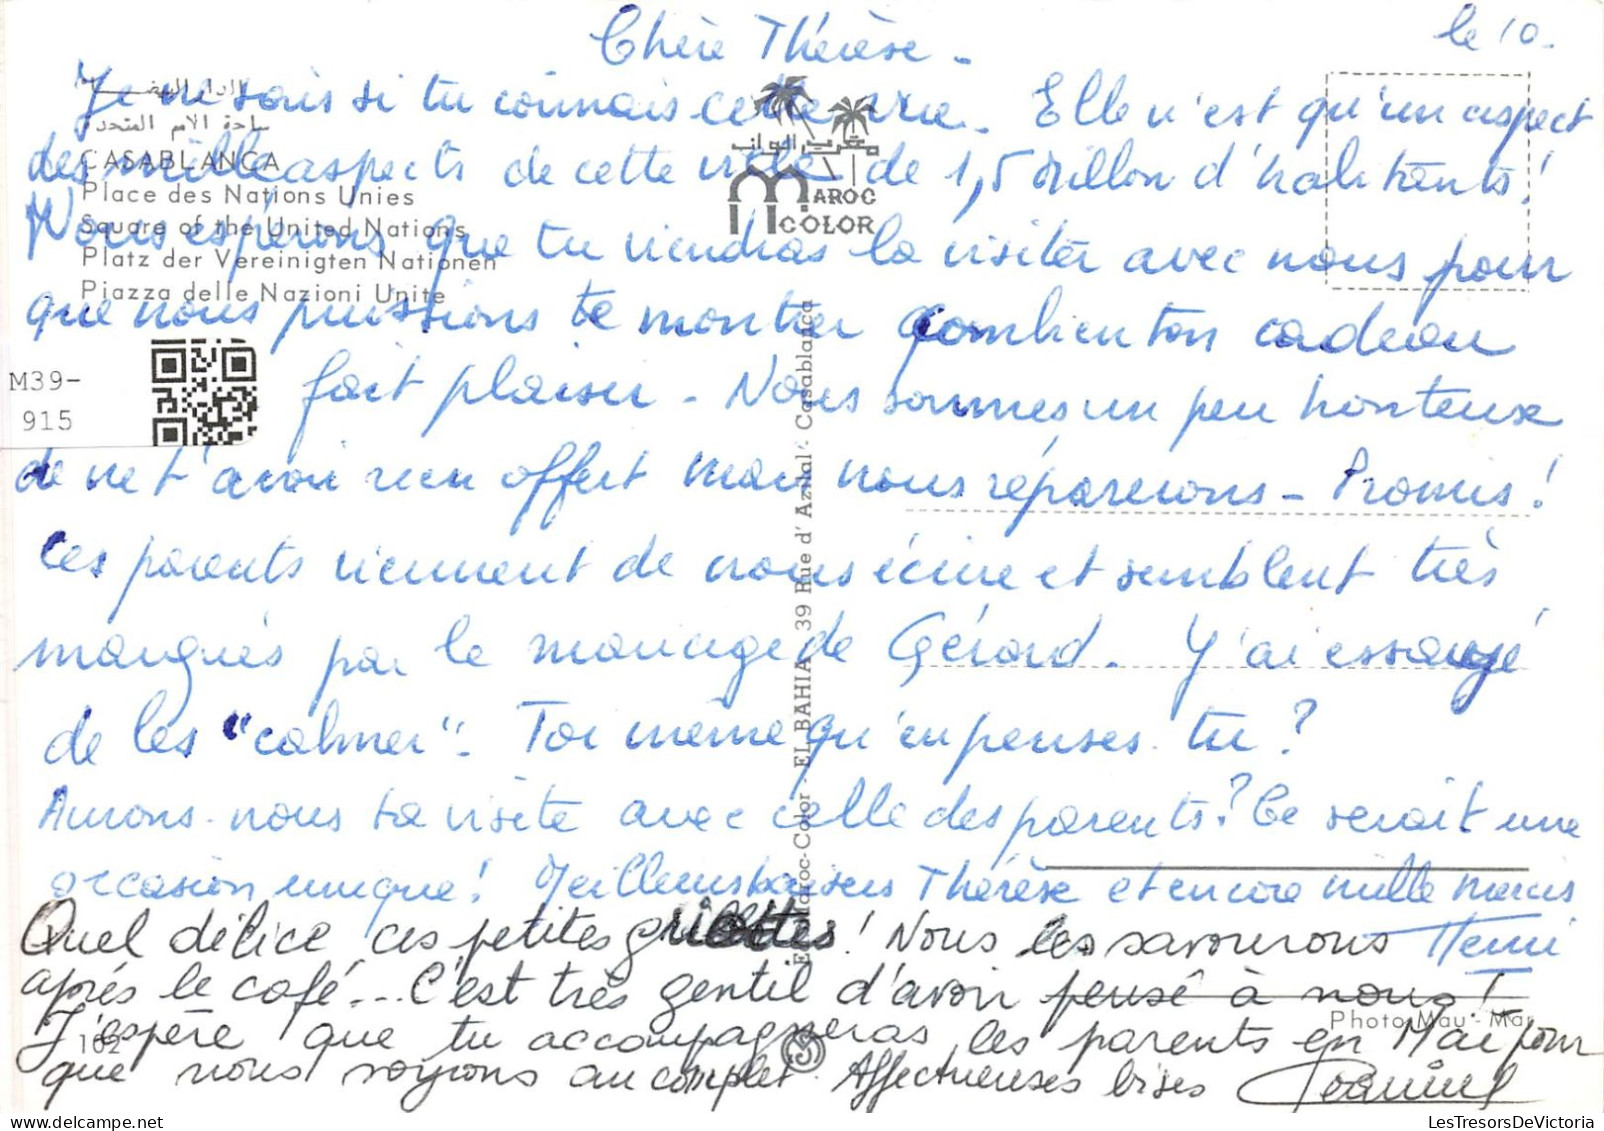 le 10.
Chère Thérèse -
Je ne sais si tu connais cette vue. Elle n'est qu'un aspect
des mille aspects de cette ville de 1,5 million d'habitants!
Nous espérons que tu viendras la visiter avec nous pour
que nous puissions te montrer combien ton cadeau
fait plaisir - Nous sommes un peu honteux
de ne t'avoir rien offert mais nous réparerons - Promis!
Les parents viennent de nous écrire et semblent très
marqués par le mariage de Gérard. J'ai essayé
de les "calmer". Toi même qu'en penses-tu?
Aurons-nous ta visite avec celle des parents? Ce serait une
occasion unique! Meilleurs baisers Thérèse et encore mille mercis
Henri
Quel délice ces petites griottes! Nous les savourons
après le café... C'est très gentil d'avoir pensé à nous!
J'espère que tu accompagneras les parents en Mai pour
que nous soyions au complet. Affectueuses bises
الدار البيضاء
ساحة الامم المتحدة
CASABLANCA
Place des Nations Unies
Square of the United Nations
Platz der Vereinigten Nationen
Piazza delle Nazioni Unite
M39-
915
MAROC
COLOR
Maroc-Color - EL BAHIA 39 Rue d'Azilal - Casablanca
Photo Mau-Mar
102
LesTresorsDeVictoria